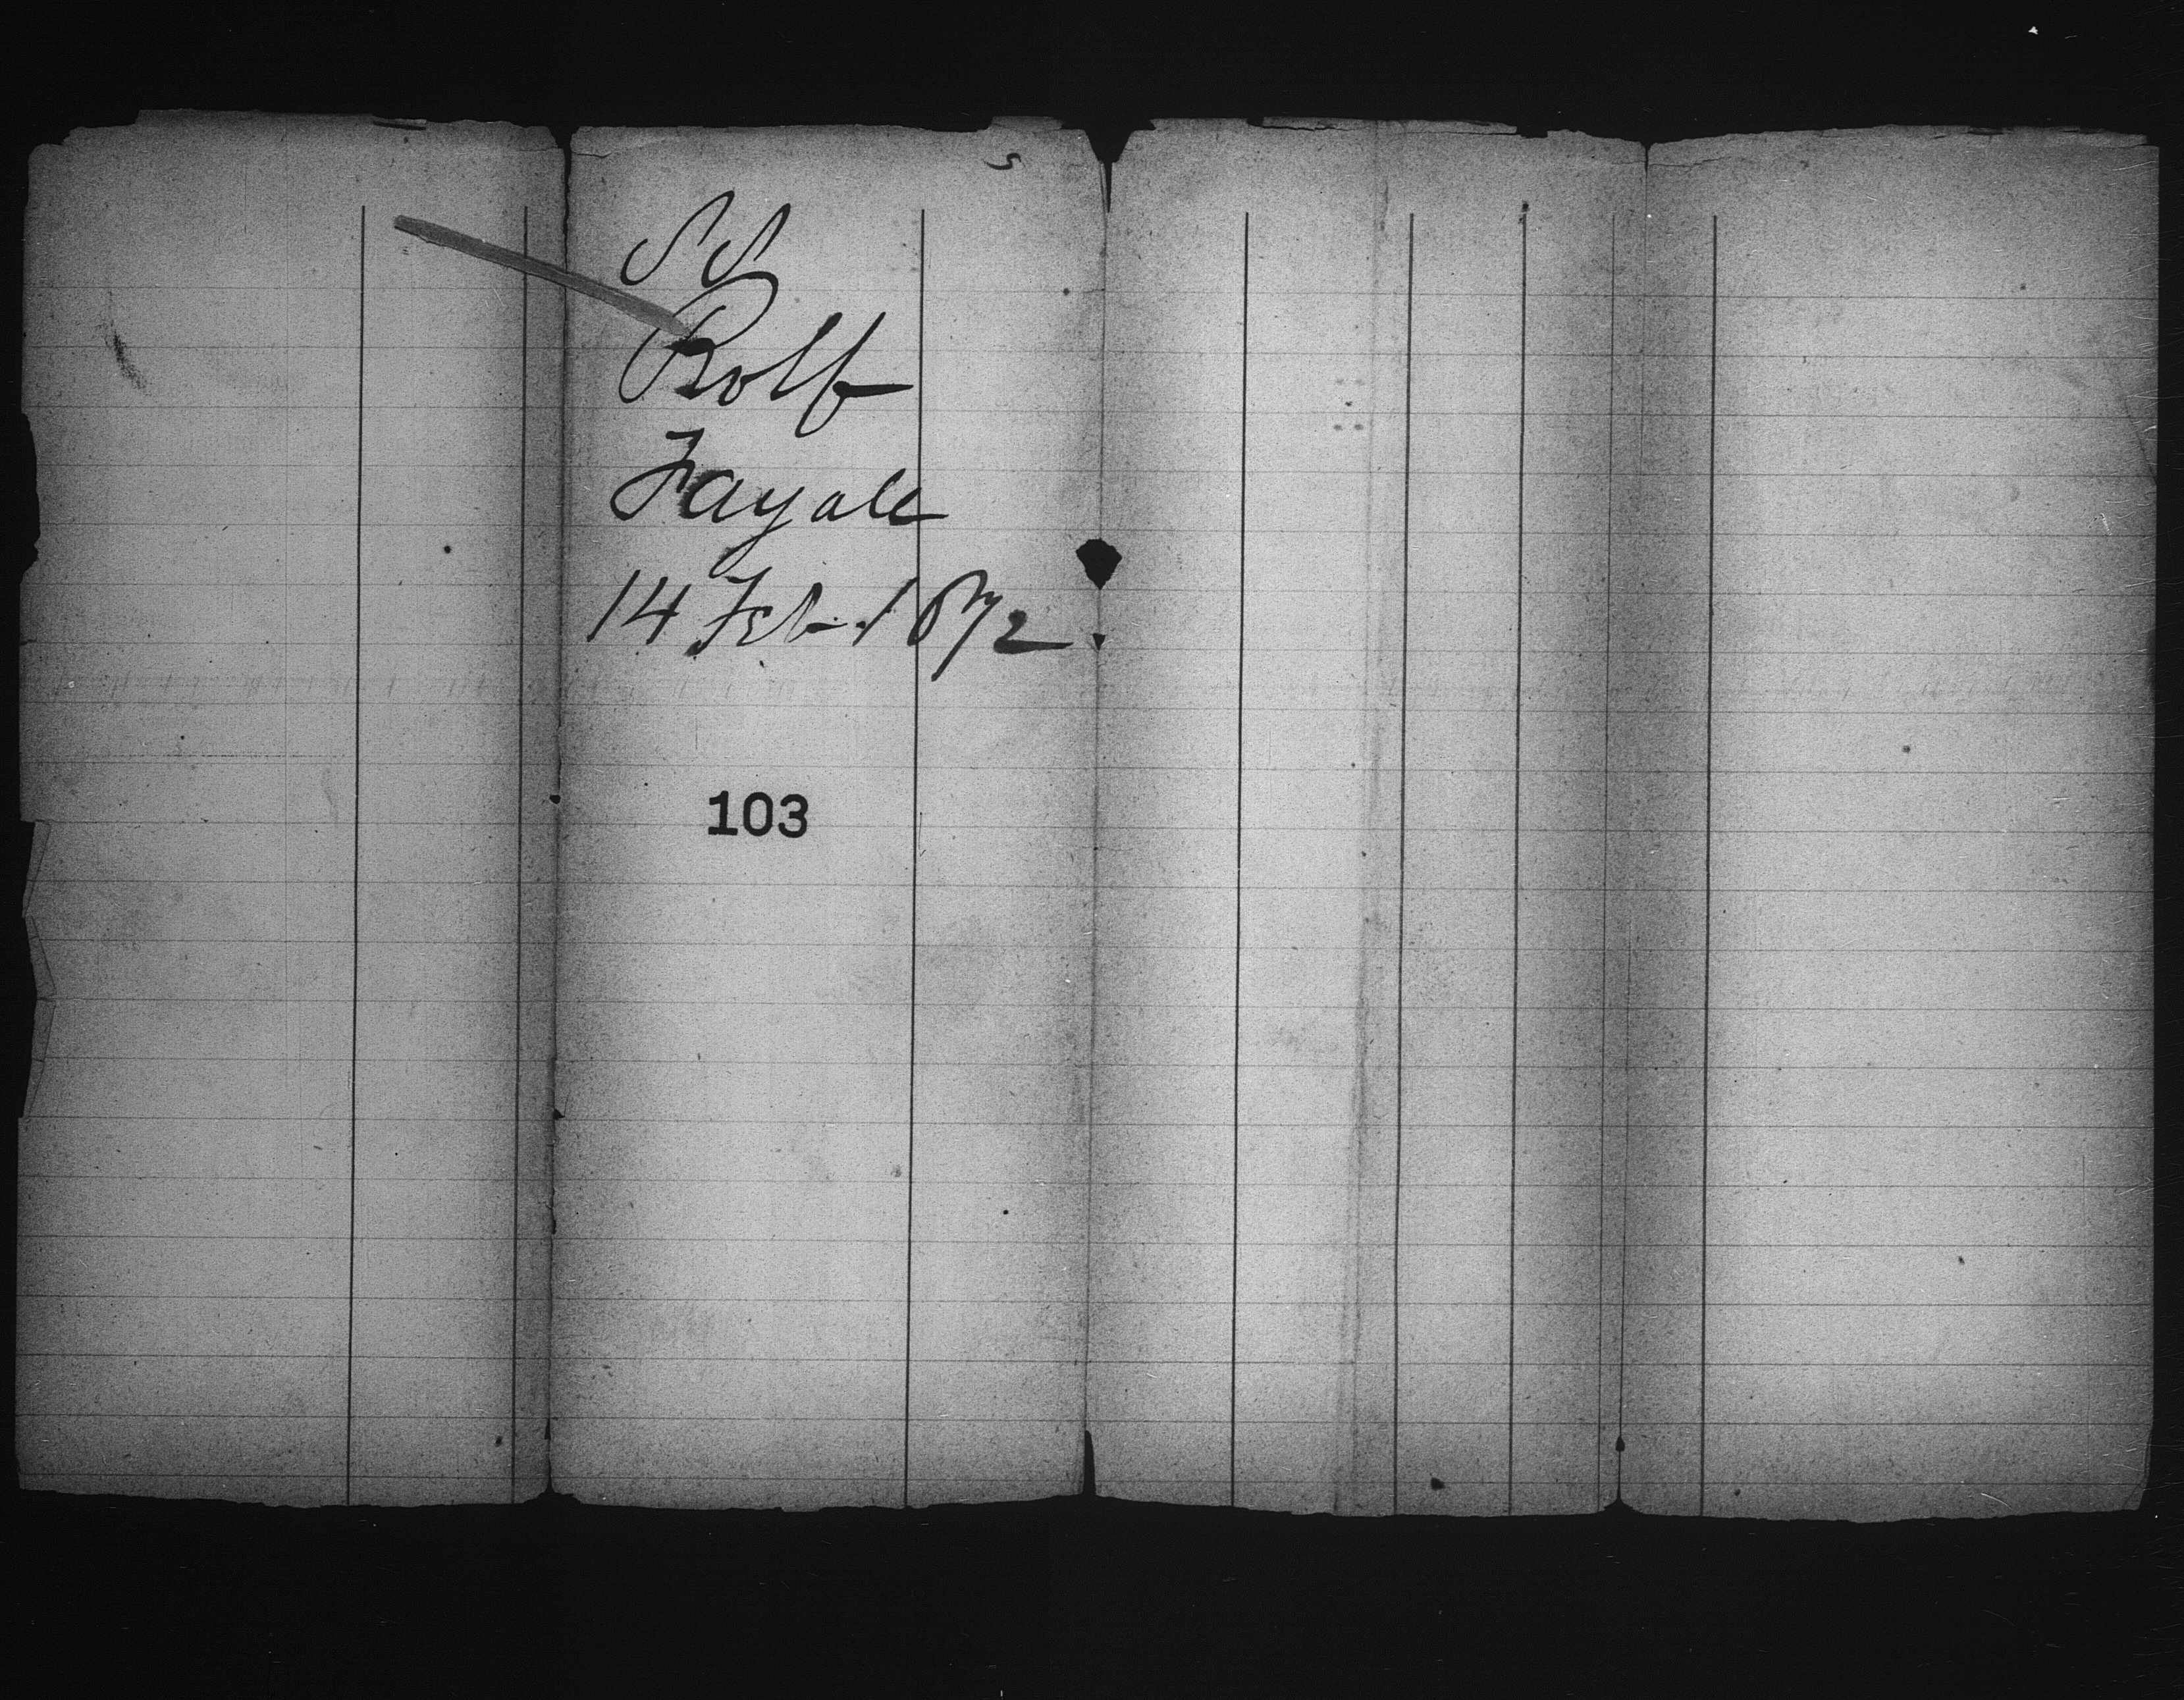 SS
Rolf
Fayall
14 Feb. 1872
103